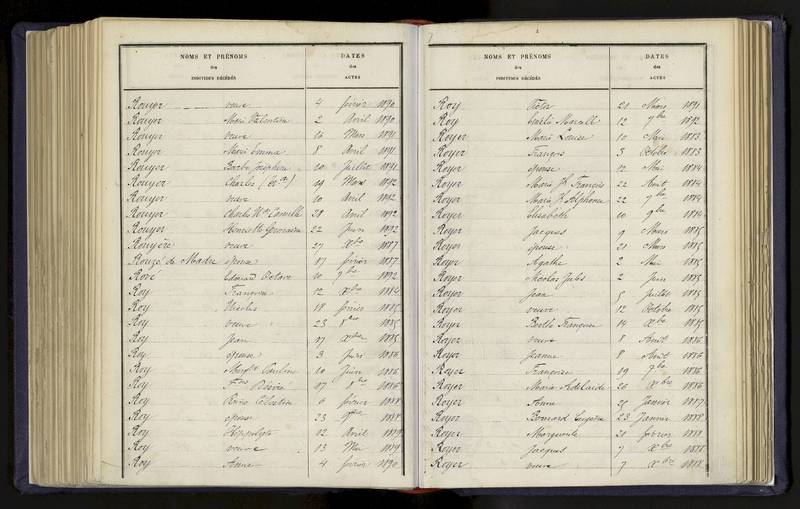 NOMS ET PRÉNOMS DATES
des des
INDIVIDUS DÉCÉDÉS ACTES
Rouyer veuve 4 février 1890
Rouyer Marie Valentine 2 Avril 1890
Rouyer veuve 16 Mars 1891
Rouyer Marie Emma 8 Avril 1891
Rouyer Barbe Joséphine 10 Juillet 1891
Rouyer Charles 19 Mars 1892
Rouyer veuve 10 Avril 1892
Rouyer Charles Camille 28 Avril 1892
Rouyer Henriette Germaine 22 Juin 1892
Rouyère veuve 27 Xbre 1887
Rouzé de Madre épouse 17 février 1887
Rové Edouard Octave 10 9bre 1892
Roy 12 Xbre 1884
Roy Nicolas 18 février 1885
Roy veuve 23 1885
Roy Jean 17 1885
Roy épouse 3 1886
Roy Pauline 10 Juin 1886
Roy Désiré 17 1886
Roy Célestine 6 février 1888
Roy épouse 23 9bre 1888
Roy Hippolyte 12 Avril 1889
Roy veuve 13 Mai 1889
Roy Anne 4 février 1890
NOMS ET PRÉNOMS DATES
des des
INDIVIDUS DÉCÉDÉS ACTES
Roy Victor 21 Mars 1891
Roy Marcel 12 9bre 1892
Royer Marie Louise 10 Mai 1883
Royer François 3 Octobre 1883
Royer épouse 12 Mai 1884
Royer Marie François 22 Août 1884
Royer Marie Alphonse 22 7bre 1884
Royer Elisabeth 10 9bre 1884
Royer Jacques 9 Mars 1885
Royer épouse 21 Mars 1885
Royer Agathe 2 Mai 1885
Royer Nicolas Jules 2 Juin 1885
Royer Jean 5 Juillet 1885
Royer veuve 12 Octobre 1885
Royer Françoise 14 Xbre 1885
Royer veuve 8 Août 1886
Royer Jeanne 8 Août 1886
Royer Françoise 19 7bre 1886
Royer Maria Adélaïde 20 Xbre 1886
Royer Anne 25 Janvier 1887
Royer Bernard Eugène 23 Janvier 1888
Royer Marguerite 21 février 1888
Royer Jacques 7 Xbre 1888
Royer veuve 7 Xbre 1888